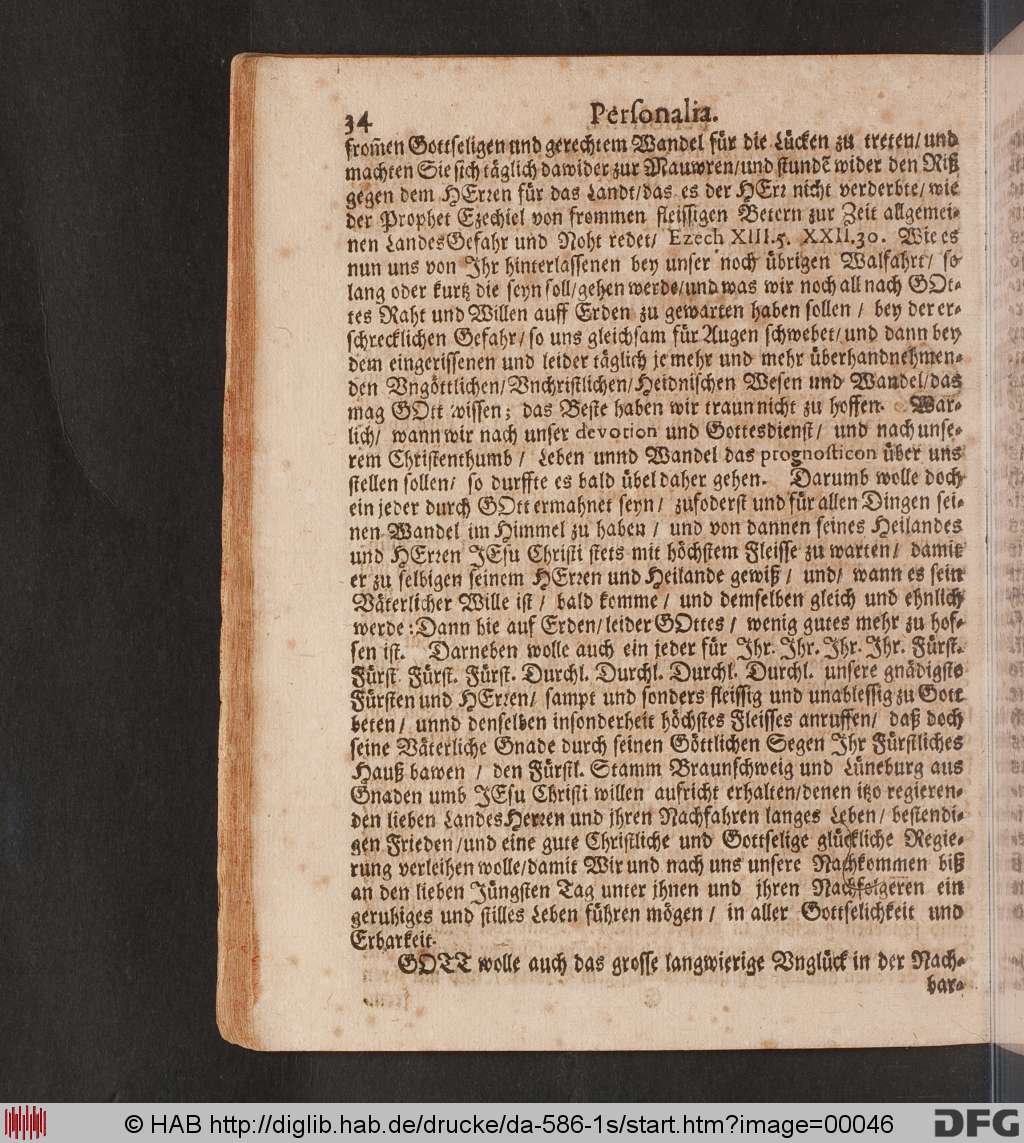 34 Personalia.
from̃en Gottseligen und gerechtem Wandel für die Lücken zu treten/ und
machten Sie sich täglich dawider zur Mauwren/ und stundẽ wider den Riß
gegen dem HErren für das Landt/ das es der HErr nicht verderbte/ wie
der Prophet Ezechiel von frommen fleissigen Betern zur Zeit allgemei-
nen LandesGefahr und Noht redet/ Ezech XIII.5. XXII.30. Wie es
nun uns von Ihr hinterlassenen bey unser noch übrigen Walfahrt/ so
lang oder kurtz die seyn soll/ gehen werde/ und was wir noch all nach GOt-
tes Raht und Willen auff Erden zu gewarten haben sollen / bey der er-
schrecklichen Gefahr/ so uns gleichsam für Augen schwebet/ und dann bey
dem eingerissenen und leider täglich je mehr und mehr überhandnehmen-
den Vngöttlichen/ Vnchristlichen/ Heidnischen Wesen und Wandel/ das
mag GOtt wissen; das Beste haben wir traun nicht zu hoffen. War-
lich/ wann wir nach unser devotion und Gottesdienst/ und nach unse-
rem Christenthumb / Leben unnd Wandel das prognosticon über uns
stellen sollen/ so durffte es bald übel daher gehen. Darumb wolle doch
ein jeder durch GOtt ermahnet seyn/ zufoderst und für allen Dingen sei-
nen Wandel im Himmel zu haben / und von dannen seines Heilandes
und HErren JEsu Christi stets mit höchstem Fleisse zu warten/ damit
er zu selbigen seinem HErren und Heilande gewiß / und/ wann es sein
Väterlicher Wille ist / bald komme / und demselben gleich und ehnlich
werde: Dann hie auf Erden/ leider GOttes / wenig gutes mehr zu hof-
fen ist. Darneben wolle auch ein jeder für Ihr. Ihr. Ihr. Ihr. Fürst.
Fürst Fürst. Fürst. Durchl. Durchl. Durchl. Durchl. unsere gnädigste
Fürsten und HErren/ sampt und sonders fleissig und unablessig zu Gott
beten / unnd denselben insonderheit höchstes Fleisses anruffen/ daß doch
seine Väterliche Gnade durch seinen Göttlichen Segen Ihr Fürstliches
Hauß bawen / den Fürstl. Stamm Braunschweig und Lüneburg aus
Gnaden umb JEsu Christi willen aufricht erhalten/ denen itzo regieren-
den lieben LandesHerren und jhren Nachfahren langes Leben/ bestendi-
gen Frieden/ und eine gute Christliche und Gottselige glückliche Regie-
rung verleihen wolle/ damit Wir und nach uns unsere Nachkommen biß
an den lieben Jüngsten Tag unter jhnen und jhren Nachfolgeren ein
geruhiges und stilles Leben führen mögen / in aller Gottselichkeit und
Erbarkeit.
GOTT wolle auch das grosse langwierige Vnglück in der Nach-
bar-
© HAB http://diglib.hab.de/drucke/da-586-1s/start.htm?image=00046
DFG